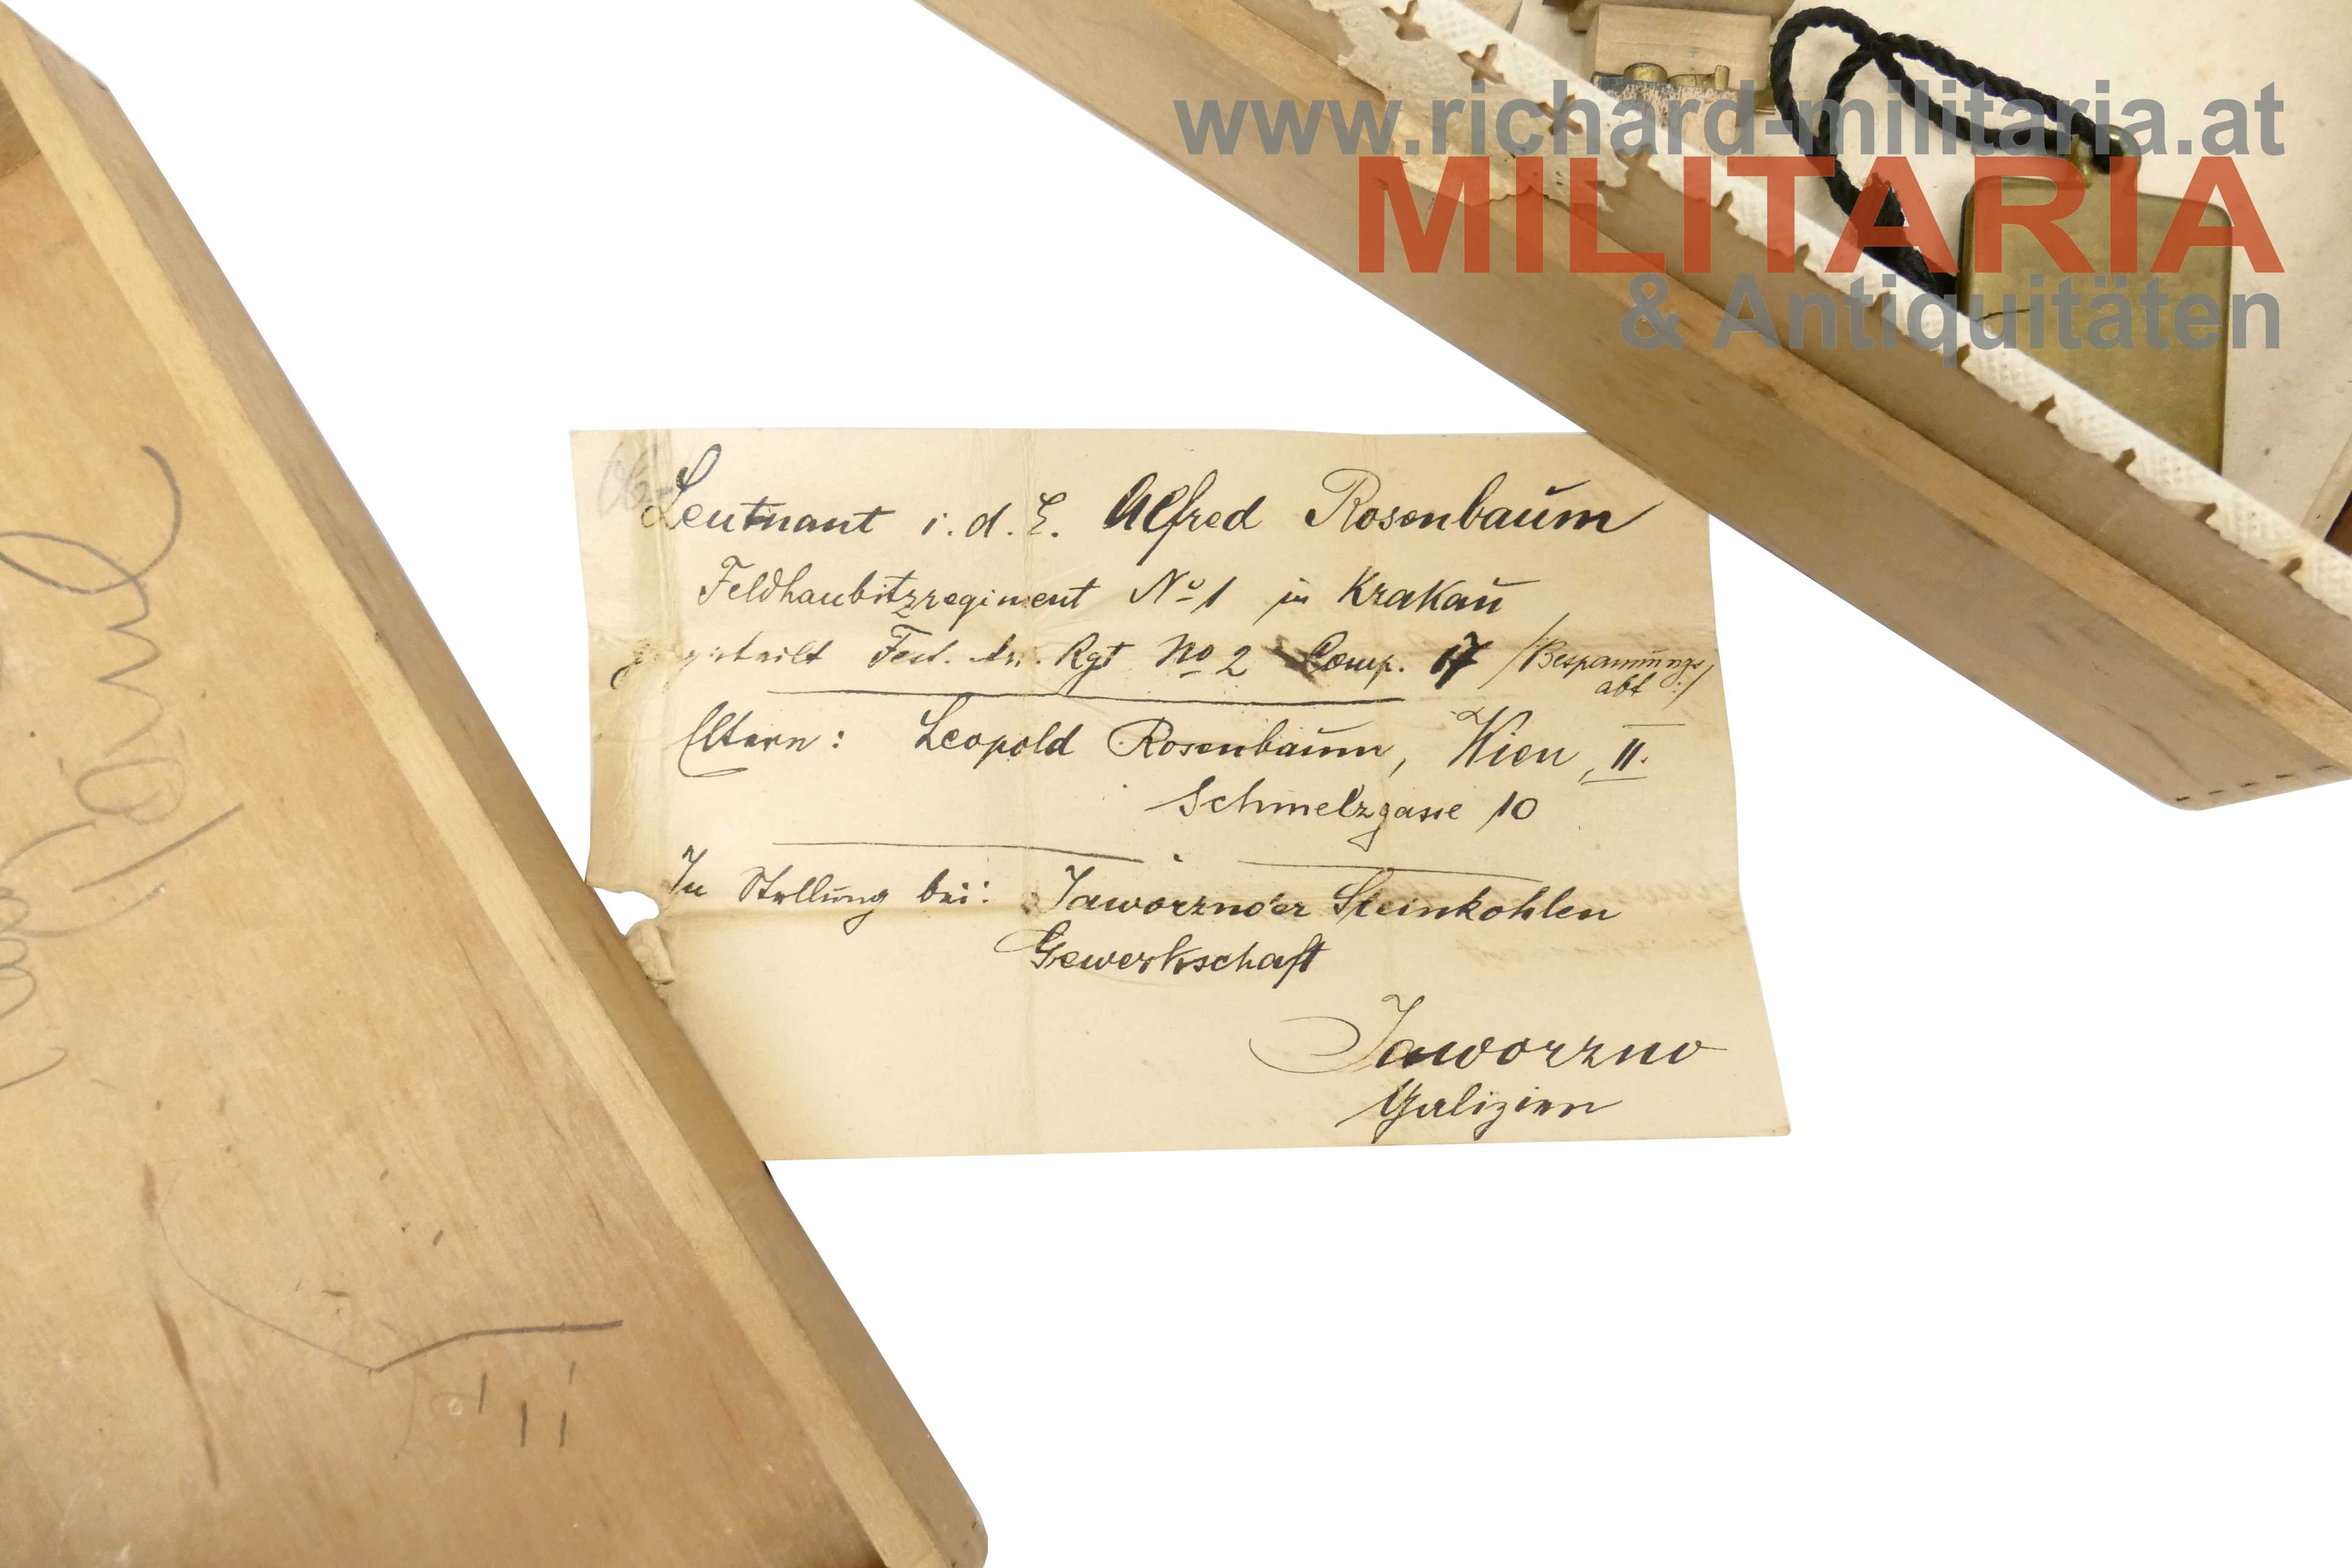 www.richard-militaria.at
MILITARIA
& Antiquitäten
Leutnant i. d. E. Alfred Rosenbaum
Feldhaubitzregiment No 1 in Krakau
Fest. Art. Rgt No 2 Comp. 17 /Bespannungs
abt:/
Eltern: Leopold Rosenbaum, Wien, II.
Schmelzgasse 10
In Stellung bei: Jaworzno'er Steinkohlen
Gewerkschaft
Jaworzno
Galizien